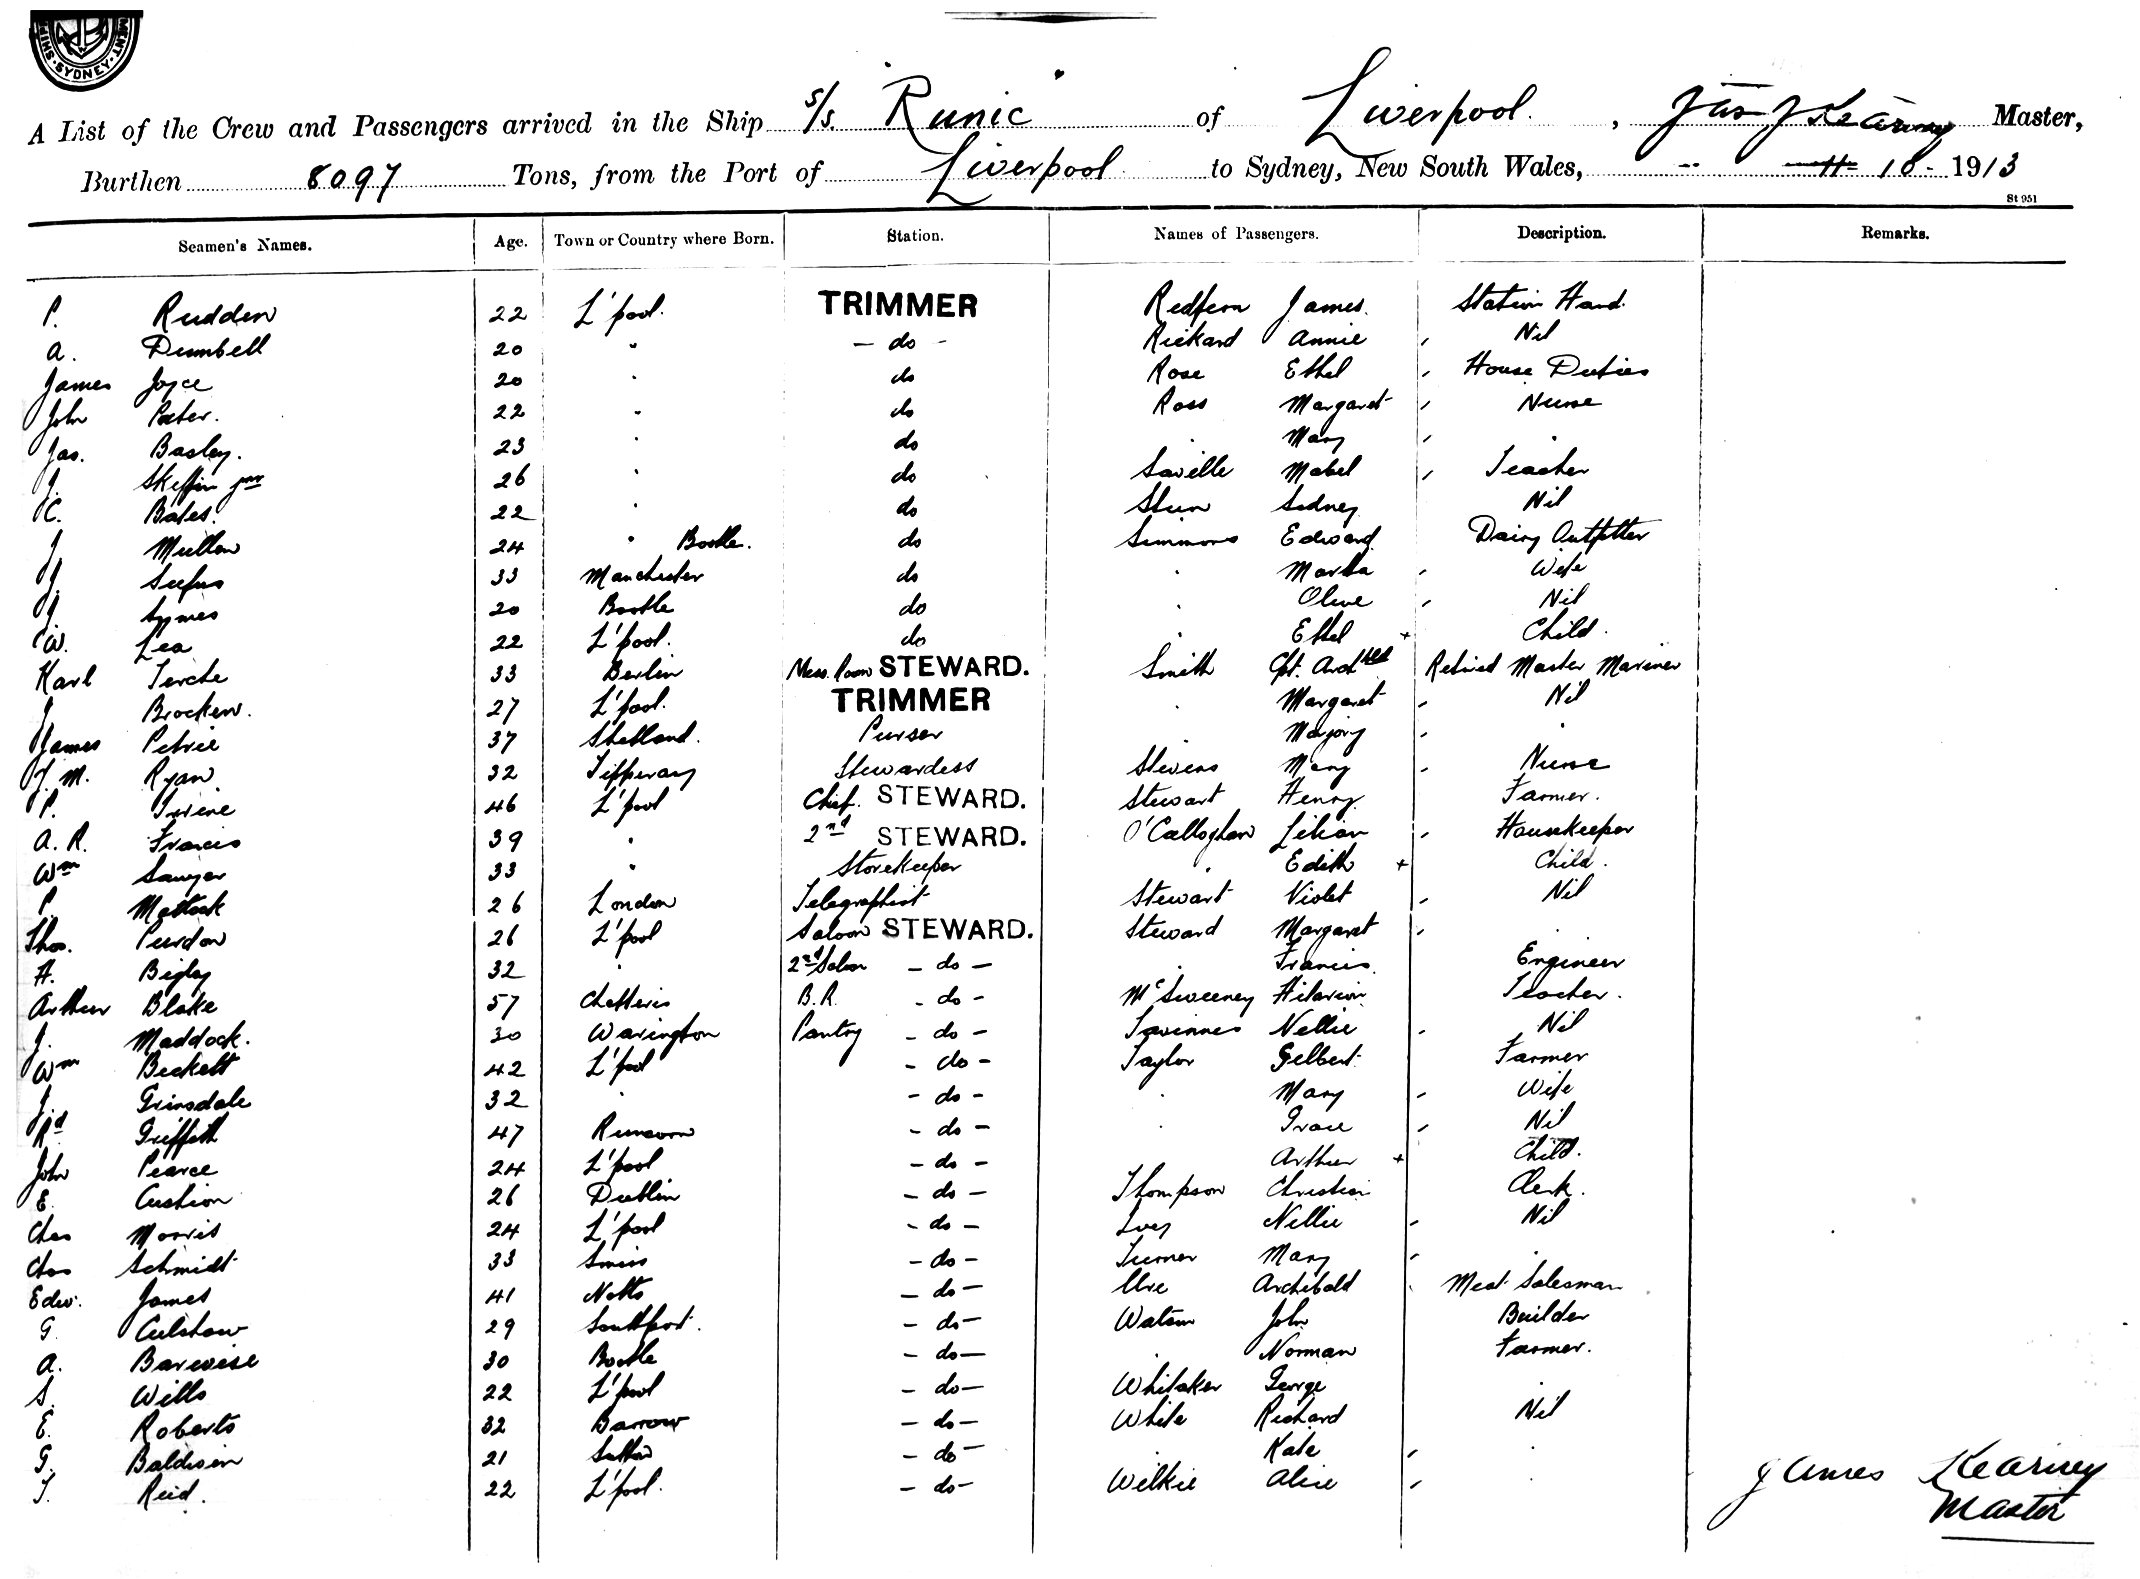 SYDNEY
A List of the Crew and Passengers arrived in the Ship s/s. "Runic" of Liverpool, Jas J Kearney Master,
Burthen 8097 Tons, from the Port of Liverpool to Sydney, New South Wales, 18 - 1913
St 951
Seamen's Names. Age. Town or Country where Born. Station. Names of Passengers. Description. Remarks.
P. Rudden 22 L'pool. TRIMMER Redfern James. Station Hand.
A. Dumbell 20 " - do - Rickard Annie , Nil
James Joyce 20 " do Rose Ethel , House Duties
John Pater. 22 " do Ross Margaret , Nurse
Jas. Basley. 23 " do " Mary , "
J. Skeffin jnr 26 " do Saville Mabel , Teacher
C. Bates. 22 " do Sidney Nil
J Mullen 24 " Bootle. do Simmons Edward Dairy Outfitter
J. 33 Manchester do " Martha , Wife
J. Symes 20 Bootle do " Olive , Nil
W. Lea 22 L'pool. do " Ethel + Child.
Karl Terche 33 Berlin Mess Room STEWARD. Smith Cpt. Archbld Retired Master Mariner
J Brocken. 27 L'pool. TRIMMER " Margaret , Nil
James Petrie 37 Shetland. Purser " Marjory , "
M. Ryan 32 Tipperary Stewardess Stevens Mary , Nurse
P. Irvine 46 L'pool Chief. STEWARD. Stewart Henry. Farmer.
A. R. Francis 39 " 2nd STEWARD. O'Callaghan Lilian , Housekeeper
Wm Sawyer 33 " Storekeeper " Edith + Child.
P. Matlock 26 London Telegraphist Stewart Violet , Nil
Thos. Purdon 26 L'pool Saloon STEWARD. Steward Margaret , "
H. Bigley 32 " 2nd Saloon - do - " Francis. Engineer
Arthur Blake 57 Chatteris B. R. - do - McSweeney Hilarion Teacher.
J. Maddock. 30 Warington Pantry - do - Nellie , Nil
Wm Beckett 42 L'pool - do - Taylor Gilbert Farmer
J. Grinsdale 32 " - do - " Mary , Wife
Rd Griffith 47 Runcorn - do - " Grace , Nil
John Pearce 24 L'pool - do - Arthur + Child.
E. Cushion 26 Dublin - do - Thompson Christian Clerk.
Chas Morris 24 L'pool - do - Ivey Nellie , Nil
Chas Schmidt 33 Swiss - do - Turner Mary , "
Edw. James 41 Notts - do - Ure Archibald Meat Salesman
G. Culshaw 29 Southport. - do - Watson John Builder
A. Barwise 30 Bootle - do - " Norman Farmer.
S. Wills 22 L'pool - do - Whitaker George "
E. Roberts 32 Barrow - do - White Richard Nil
G. Baldwin 21 Sutton - do - " Kate , "
T. Reid. 22 L'pool. - do - Wilkie Alice , "
James Kearney
Master